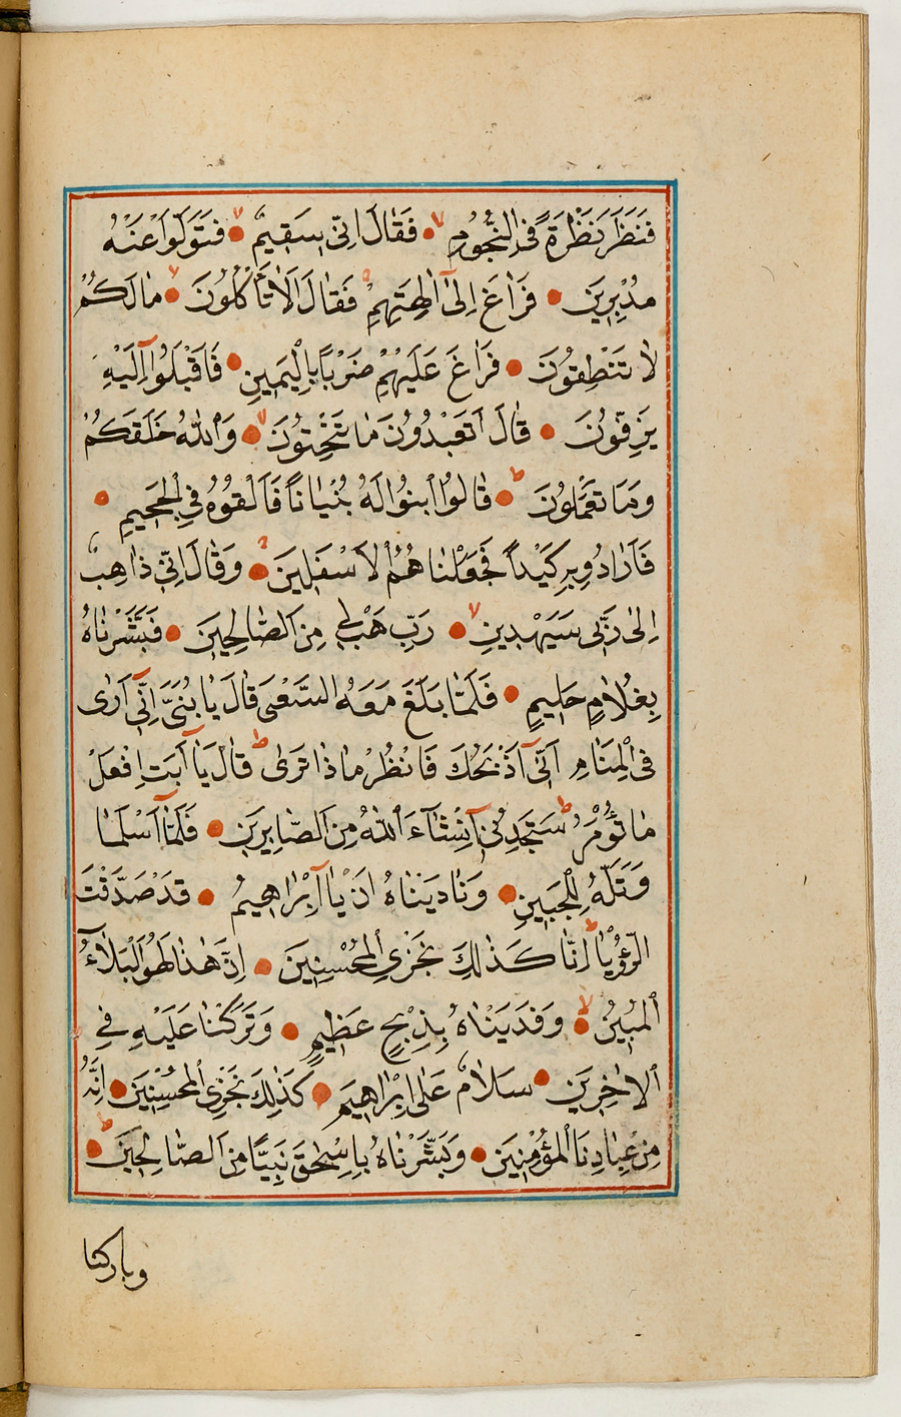 فَنَظَرَ نَظْرَةً فِي النُّجُومِ فَقَالَ اِنِّي سَقِيمٌ فَتَوَلَّوْا عَنْهُ
مُدْبِرِينَ فَرَاغَ اِلٰٓى اٰلِهَتِهِمْ فَقَالَ اَلَا تَأْكُلُونَ مَا لَكُمْ
لَا تَنْطِقُونَ فَرَاغَ عَلَيْهِمْ ضَرْبًا بِالْيَمِينِ فَاَقْبَلُوٓا اِلَيْهِ
يَزِفُّونَ قَالَ اَتَعْبُدُونَ مَا تَنْحِتُونَ وَاللّٰهُ خَلَقَكُمْ
وَمَا تَعْمَلُونَ قَالُوا ابْنُوا لَهُ بُنْيَانًا فَاَلْقُوهُ فِي الْجَحِيمِ
فَاَرَادُوا بِهِ كَيْدًا فَجَعَلْنَاهُمُ الْاَسْفَلِينَ وَقَالَ اِنِّي ذَاهِبٌ
اِلٰى رَبِّي سَيَهْدِينِ رَبِّ هَبْ لِي مِنَ الصَّالِحِينَ فَبَشَّرْنَاهُ
بِغُلَامٍ حَلِيمٍ فَلَمَّا بَلَغَ مَعَهُ السَّعْيَ قَالَ يَا بُنَيَّ اِنِّٓي اَرٰى
فِي الْمَنَامِ اَنِّٓي اَذْبَحُكَ فَانْظُرْ مَاذَا تَرٰى قَالَ يَٓا اَبَتِ افْعَلْ
مَا تُؤْمَرُ سَتَجِدُنِٓي اِنْ شَٓاءَ اللّٰهُ مِنَ الصَّابِرِينَ فَلَمَّٓا اَسْلَمَا
وَتَلَّهُ لِلْجَبِينِ وَنَادَيْنَاهُ اَنْ يَٓا اِبْرَاهِيمُ قَدْ صَدَّقْتَ
الرُّؤْيَا اِنَّا كَذٰلِكَ نَجْزِي الْمُحْسِنِينَ اِنَّ هٰذَا لَهُوَ الْبَلَٓاءُ
الْمُبِينُ وَفَدَيْنَاهُ بِذِبْحٍ عَظِيمٍ وَتَرَكْنَا عَلَيْهِ فِي
الْاٰخِرِينَ سَلَامٌ عَلٰى اِبْرَاهِيمَ كَذٰلِكَ نَجْزِي الْمُحْسِنِينَ اِنَّهُ
مِنْ عِبَادِنَا الْمُؤْمِنِينَ وَبَشَّرْنَاهُ بِاِسْحٰقَ نَبِيًّا مِنَ الصَّالِحِينَ
وباركنا